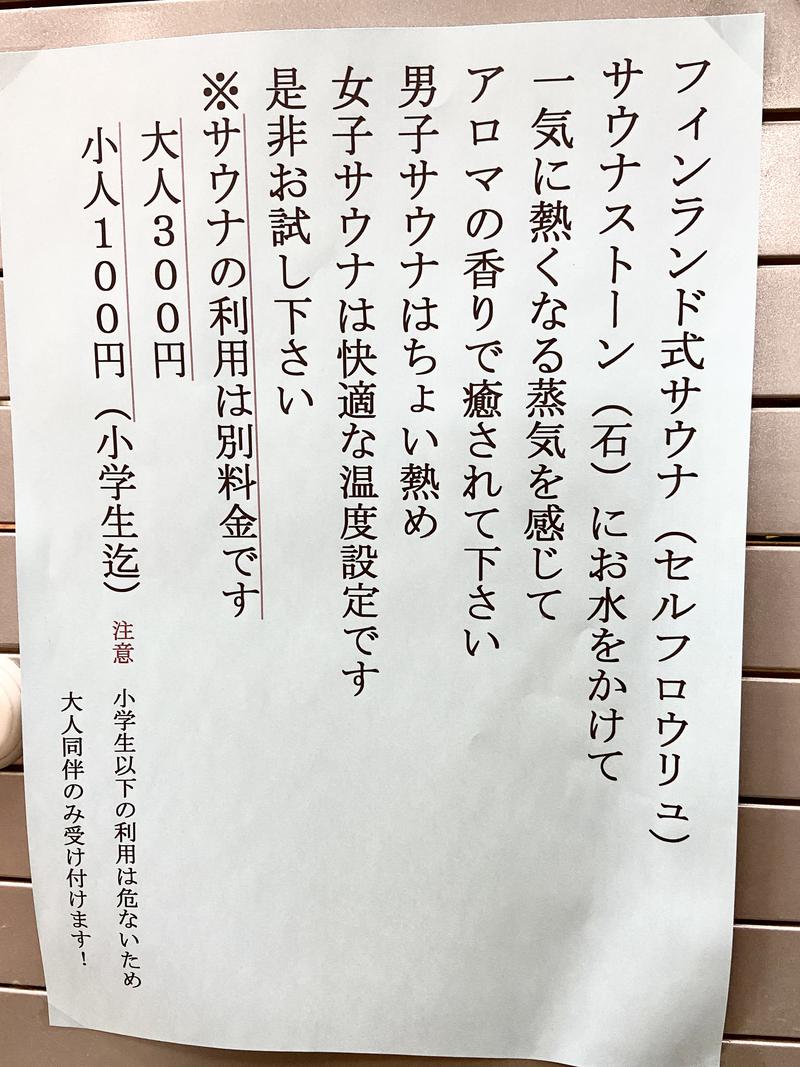 フィンランド式サウナ（セルフロウリュ）
サウナストーン（石）にお水をかけて
一気に熱くなる蒸気を感じて
アロマの香りで癒されて下さい
男子サウナはちょい熱め
女子サウナは快適な温度設定です
是非お試し下さい
※サウナの利用は別料金です
大人３００円
小人１００円（小学生迄）
注意 小学生以下の利用は危ないため
大人同伴のみ受け付けます！